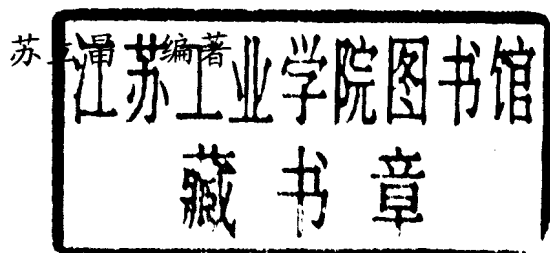 苏 编著
江苏工业学院图书馆
藏书章